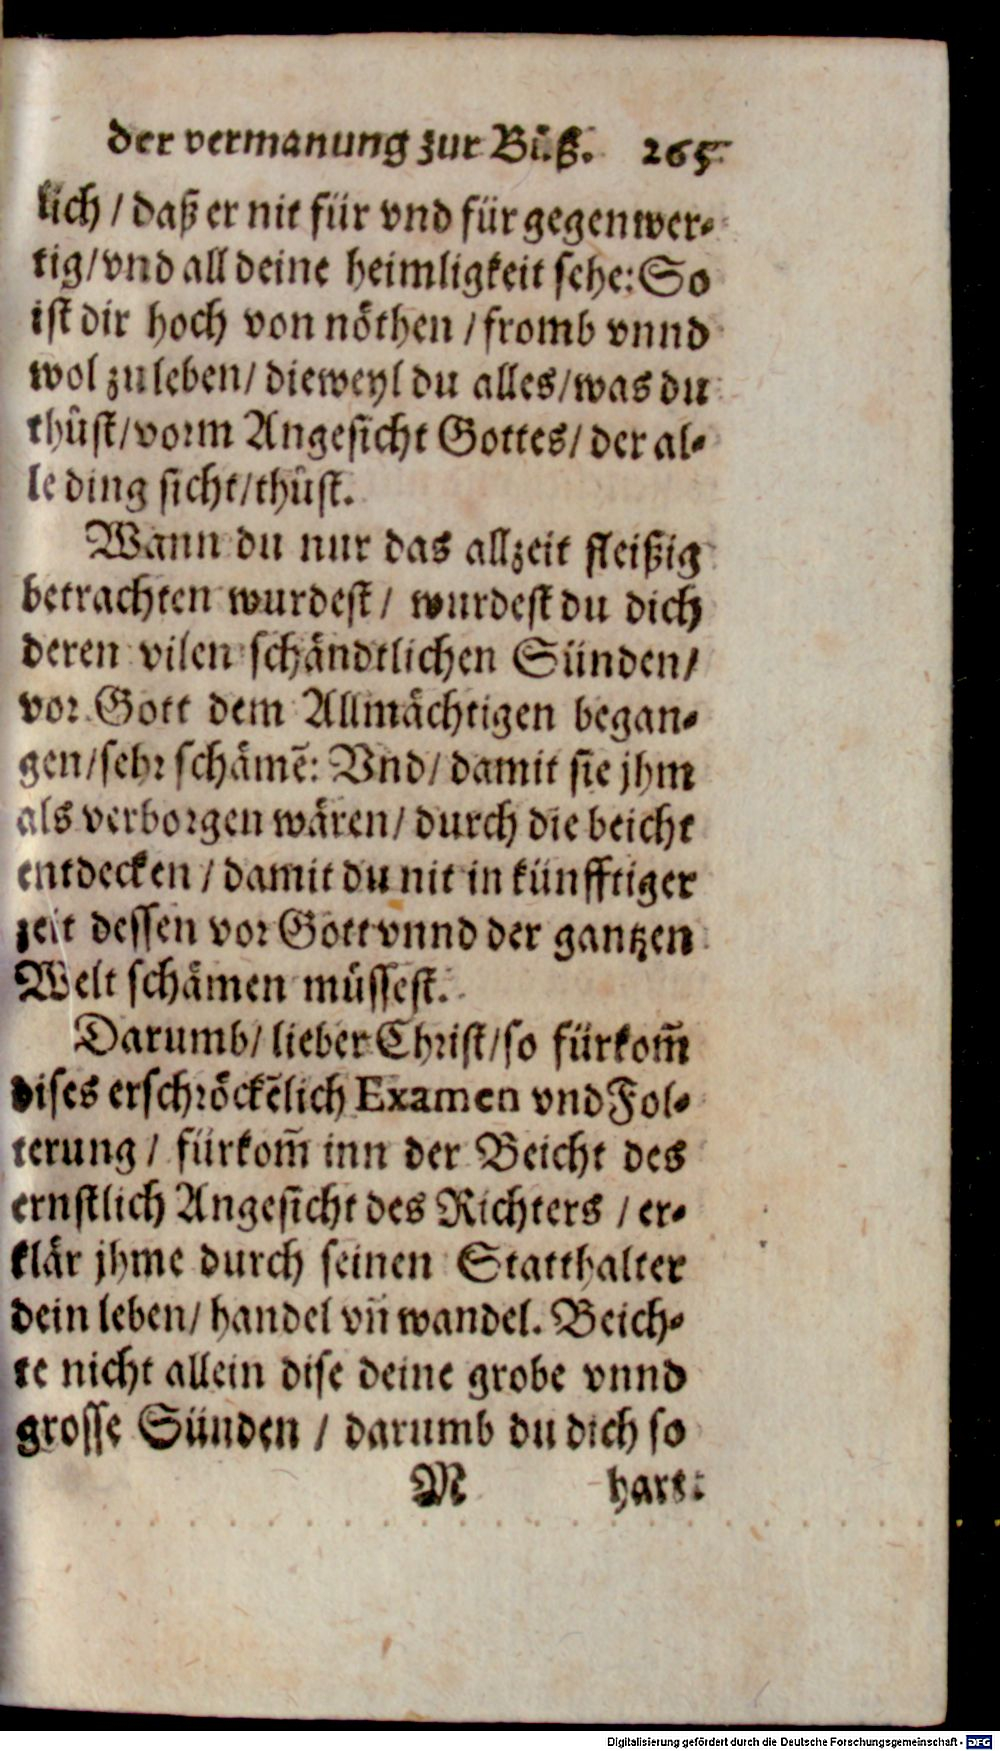 der vermanung zur Bůß. 265
lich / daß er nit für vnd für gegenwer⸗
tig/vnd all deine heimligkeit sehe: So
ist dir hoch von nöthen / fromb vnnd
wol zu leben/ dieweyl du alles/was du
thůst/vorm Angesicht Gottes/ der al⸗
le ding sicht/thůst.
Wann du nur das allzeit fleißig
betrachten wurdest / wurdest du dich
deren vilen schändtlichen Sünden/
vor Gott dem Allmächtigen began⸗
gen/sehr schämē: Vnd/ damit sie jhm
als verborgen wären/ durch die beicht
entdecken / damit du nit in künfftiger
zeit dessen vor Gott vnnd der gantzen
Welt schämen müssest.
Darumb/ lieber Christ/so fürkom̄
dises erschröckēlich Examen vnd Fol⸗
terung / fürkom̄ inn der Beicht des
ernstlich Angesicht des Richters / er⸗
klär jhme durch seinen Statthalter
dein leben/ handel vn̄ wandel. Beich⸗
te nicht allein dise deine grobe vnnd
grosse Sünden / darumb du dich so
M hart
Digitalisierung gefördert durch die Deutsche Forschungsgemeinschaft - DFG